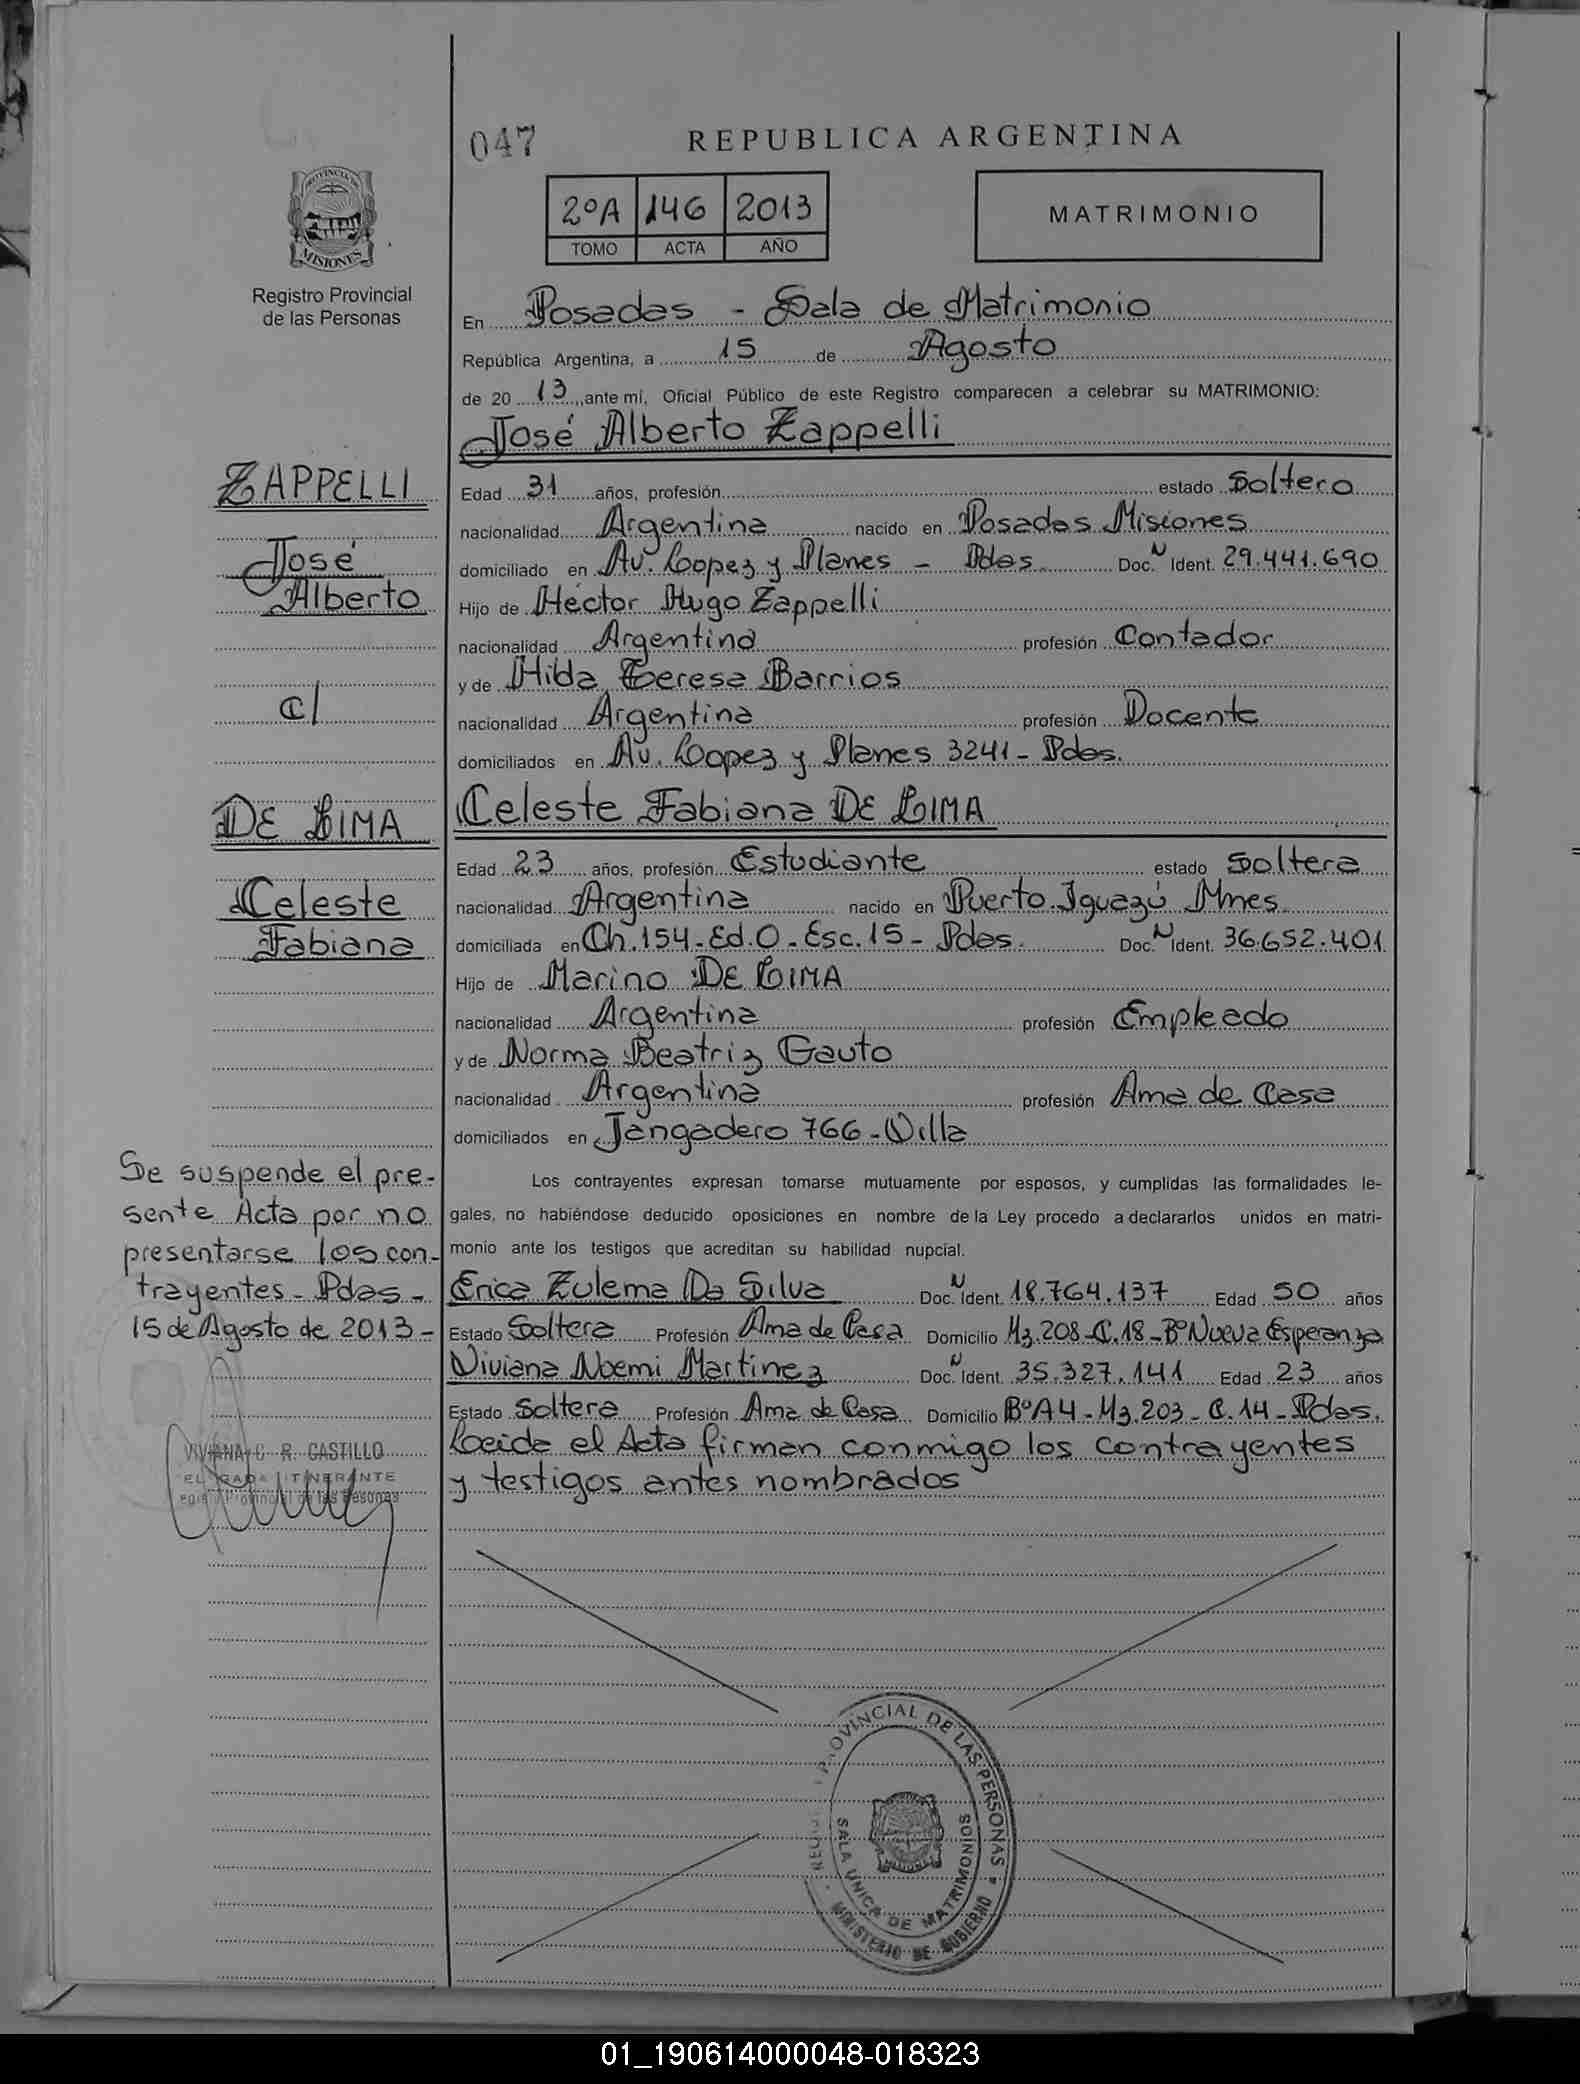 047
REPUBLICA ARGENTINA
2ºA 146 2013
TOMO ACTA AÑO
MATRIMONIO
PROVINCIA DE
MISIONES
Registro Provincial
de las Personas
En Posadas - Sala de Matrimonio
República Argentina, a 15 de Agosto
de 20 13 ante mí, Oficial Público de este Registro comparecen a celebrar su MATRIMONIO:
José Alberto Zappelli
ZAPPELLI
José
Alberto
c/
DE LIMA
Celeste
Fabiana
Edad 31 años, profesión estado Soltero
nacionalidad Argentina nacido en Posadas Misiones
domiciliado en Av. Lopez y Planes - Pdas. Doc. N Ident. 29.441.690
Hijo de Héctor Hugo Zappelli
nacionalidad Argentina profesión Contador
y de Hilda Teresa Barrios
nacionalidad Argentina profesión Docente
domiciliados en Av. Lopez y Planes 3241 - Pdas.
Celeste Fabiana DE LIMA
Edad 23 años, profesión Estudiante estado Soltera
nacionalidad Argentina nacido en Puerto Iguazú Mnes.
domiciliada en Ch. 154 - Ed. O - Esc. 15 - Pdas. Doc. N Ident. 36.652.401
Hijo de Marino DE LIMA
nacionalidad Argentina profesión Empleado
y de Norma Beatriz Gauto
nacionalidad Argentina profesión Ama de Casa
domiciliados en Jangadero 766 - Villa
Los contrayentes expresan tomarse mutuamente por esposos, y cumplidas las formalidades le-
gales, no habiéndose deducido oposiciones en nombre de la Ley procedo a declararlos unidos en matri-
monio ante los testigos que acreditan su habilidad nupcial.
Erica Zulema Da Silva Doc. N Ident. 18.764.137 Edad 50 años
Estado Soltera Profesión Ama de Casa Domicilio Mz. 208 - C. 18 - Bº Nueva Esperanza
Viviana Noemi Martinez Doc. N Ident. 35.327.141 Edad 23 años
Estado Soltera Profesión Ama de Casa Domicilio Bº A4 - Mz. 203 - C. 14 - Pdas.
Leida el Acta firman conmigo los contrayentes
y testigos antes nombrados
Se suspende el pre-
sente Acta por no
presentarse los con-
trayentes - Pdas -
15 de Agosto de 2013 -
VIVIANA C. R. CASTILLO
ITINERANTE
Provincial de las Personas
PROVINCIAL DE LAS PERSONAS
SALA UNICA DE MATRIMONIOS
MINISTERIO DE GOBIERNO
01_190614000048-018323